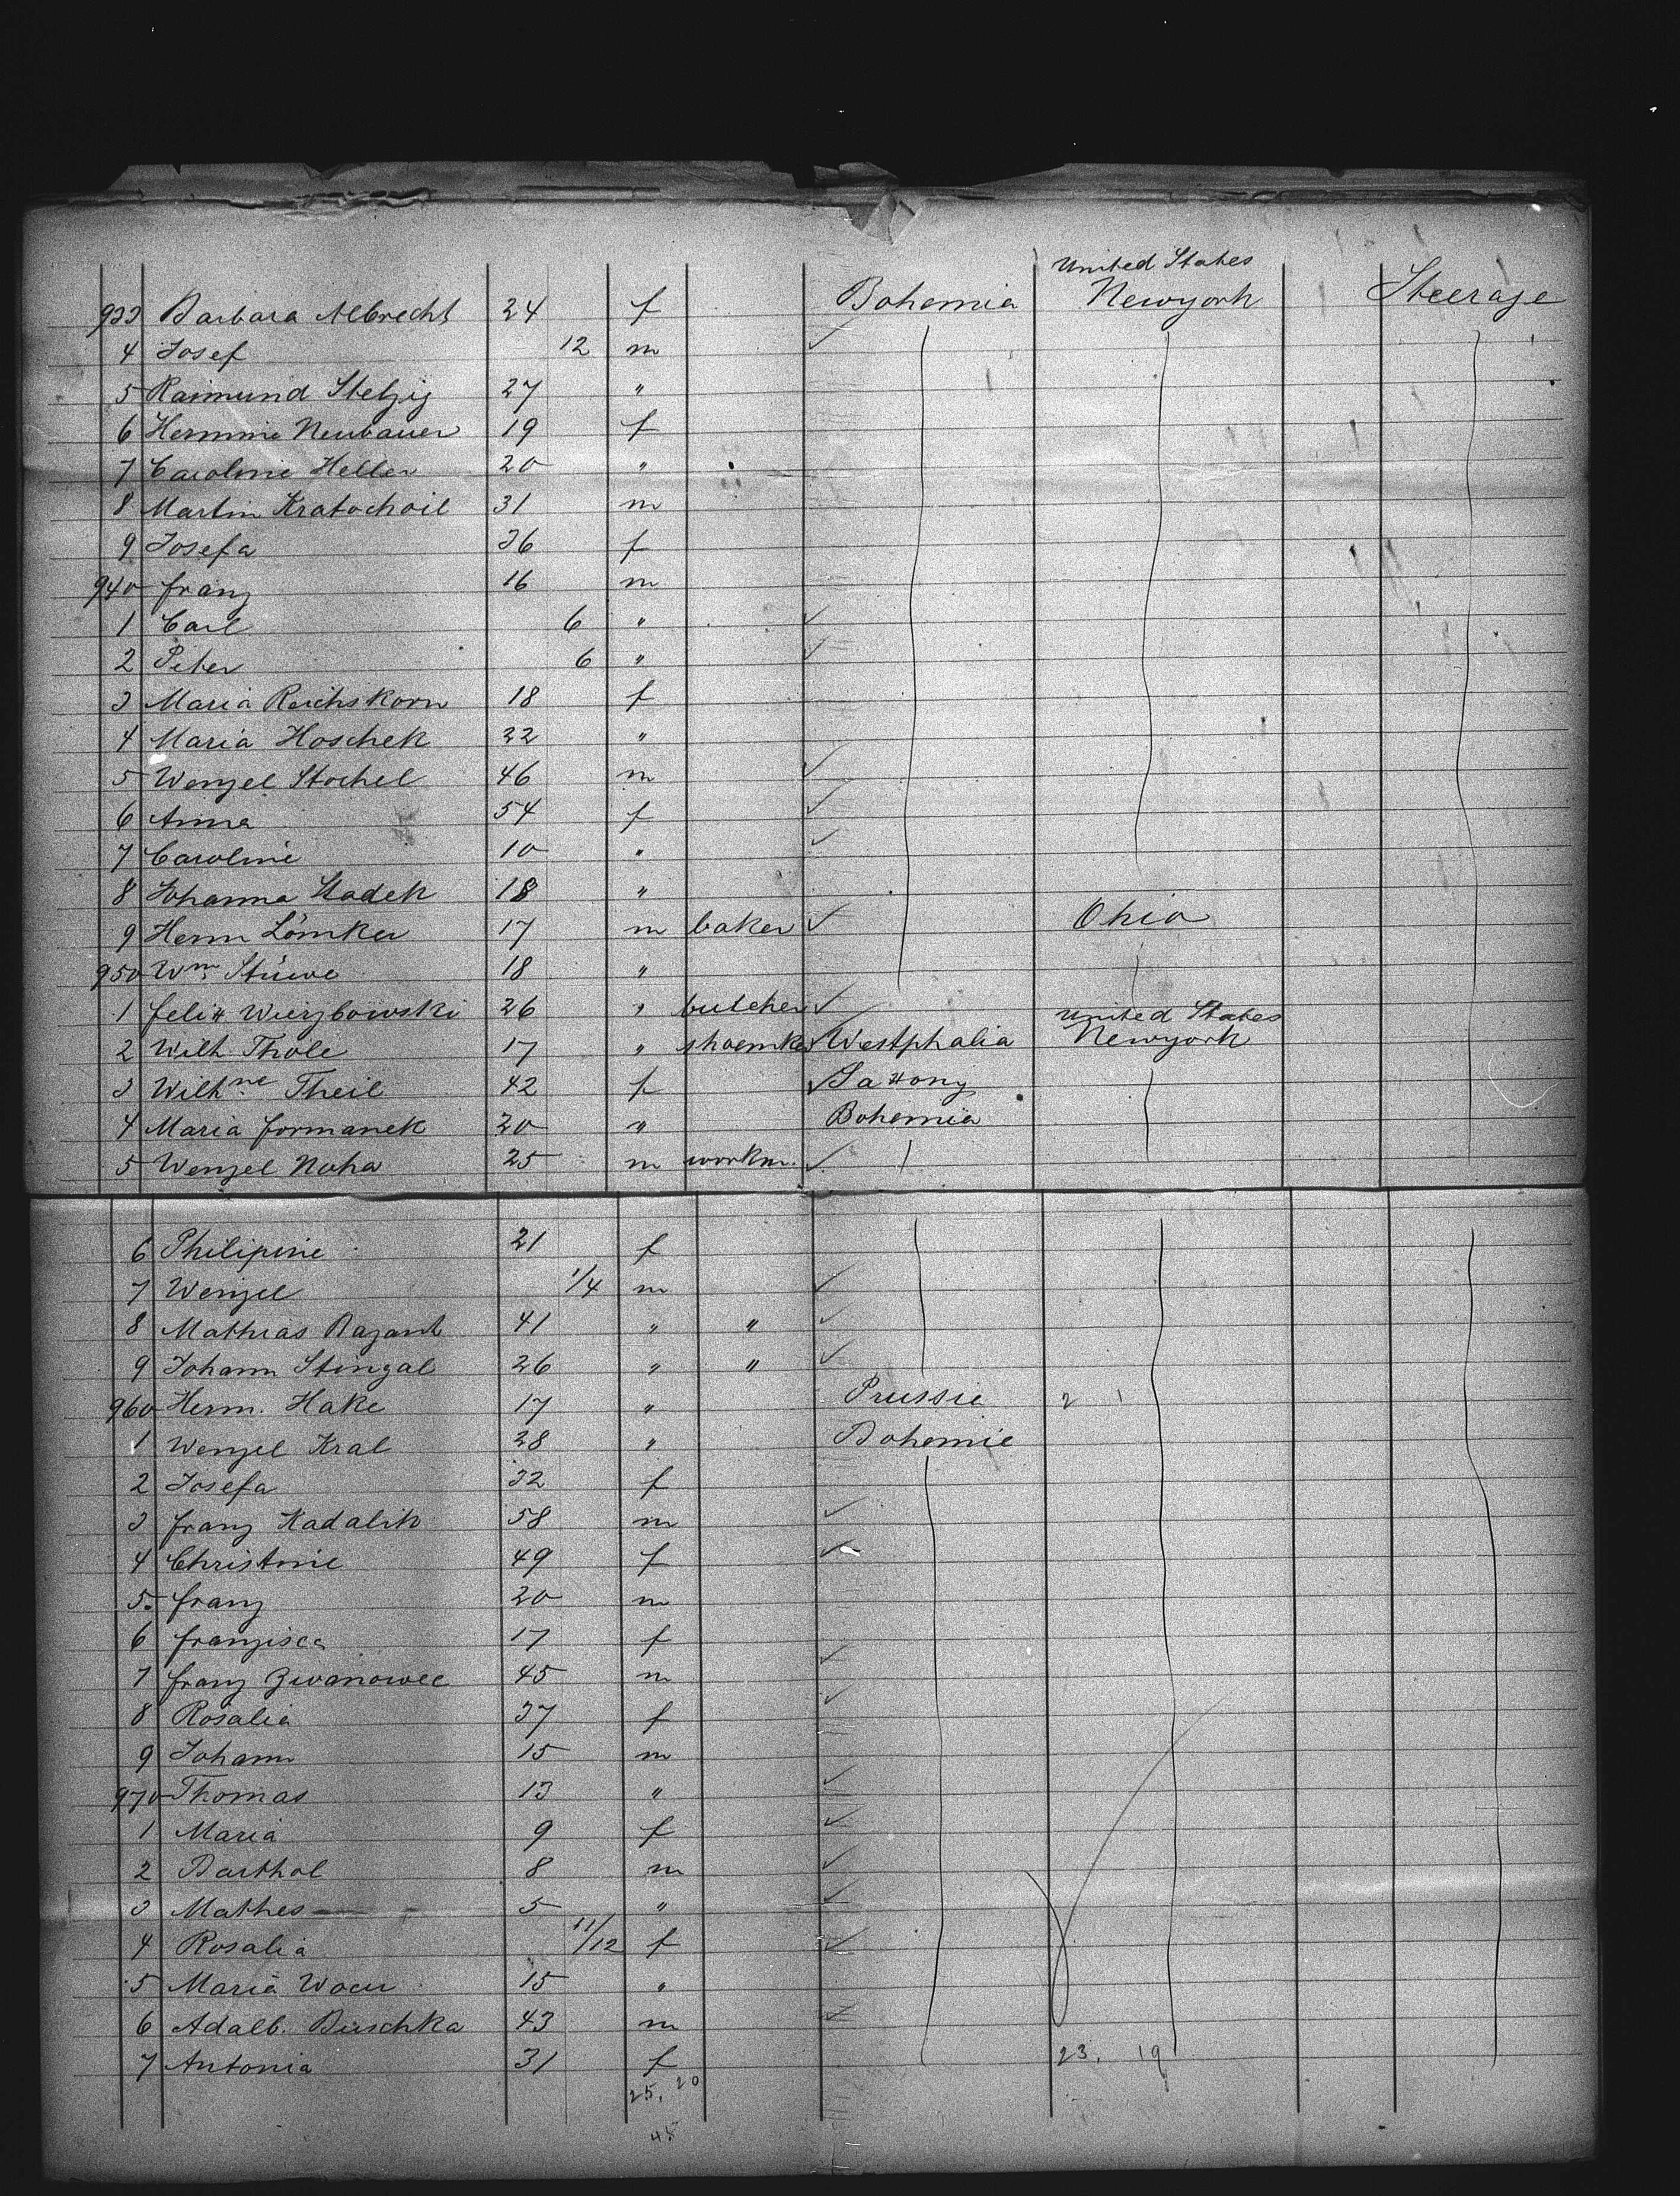 United States
933 Barbara Albrecht 24 f Bohemia Newyork Steerage
4 Josef 12 m ✓
5 Raimund Stelzig 27 "
6 Hermine Neubauer 19 f
7 Caroline Heller 20 "
8 Martin Kratochvil 31 m
9 Josefa 36 f
940 Franz 16 m
1 Carl 6 " ✓
2 Peter 6 " ✓
3 Maria Reichskorn 18 f
4 Maria Hoschek 22 "
5 Wenzel Stochel 46 m ✓
6 Anna 54 f ✓
7 Caroline 10 " ✓
8 Johanna Stadek 18 "
9 Herm Lömker 17 m baker ✓ Ohio
950 Wm Stüwe 18 "
1 Felix Wierzbowski 26 " butcher ✓ United States
2 Wilh Thole 17 " shoemker ✓ Westphalia Newyork
3 Wilhne Theil 42 f ✓ Saxony
4 Maria Formanek 20 " Bohemia
5 Wenzel Noha 25 m workm. ✓
6 Philipine 21 f
7 Wenzel 1/4 m ✓
8 Mathias Bazant 41 " " ✓
9 Johann Stingal 26 " " ✓
960 Herm. Hake 17 " Prussie 2 1
1 Wenzel Kral 28 " Bohemie
2 Josefa 32 f
3 Franz Kadalik 58 m ✓
4 Christine 49 f ✓
5 Franz 20 m
6 Franzisca 17 f
7 Franz Zwanowec 45 m ✓
8 Rosalia 37 f ✓
9 Johann 15 m
970 Thomas 13 " ✓
1 Maria 9 f ✓
2 Barthol 8 m ✓
3 Mathes 5 " ✓
4 Rosalia 11/12 f ✓
5 Maria 15 "
6 Adalb. Buschka 43 m ✓
7 Antonia 31 f 23. 19
25. 20
45